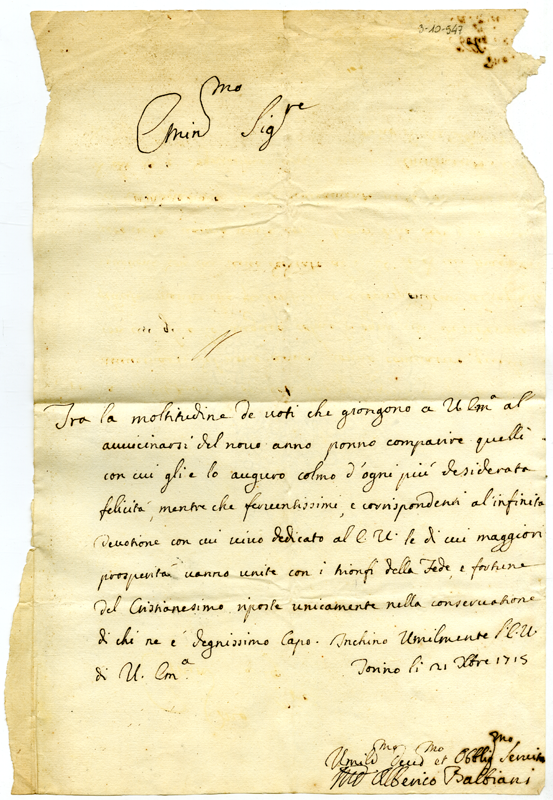 3-10-547
Emin.mo Sig.re
Tra la moltitudine de voti che giongono a V. Em.a al
auuicinarsi del nouo anno ponno comparire quelli
con cui gli e lo auguro colmo d'ogni piú desiderata
felicitá, mentre che feruentissimi, e corrispondenti al infinita
deuotione con cui viuo dedicato al E. V. le di cui maggiori
prosperitá vanno unite con i trionfi della Fede, e fortune
del Cristianesimo, riposte unicamente nella conseruatione
di chi ne é degnissimo Capo. Inchino Umilmente l'E. V.
di V. Em.a Torino li 21 Xbre 1715
Umil.mo Deud.mo et Obblig.mo Seruit.e
Alberico Balbiani